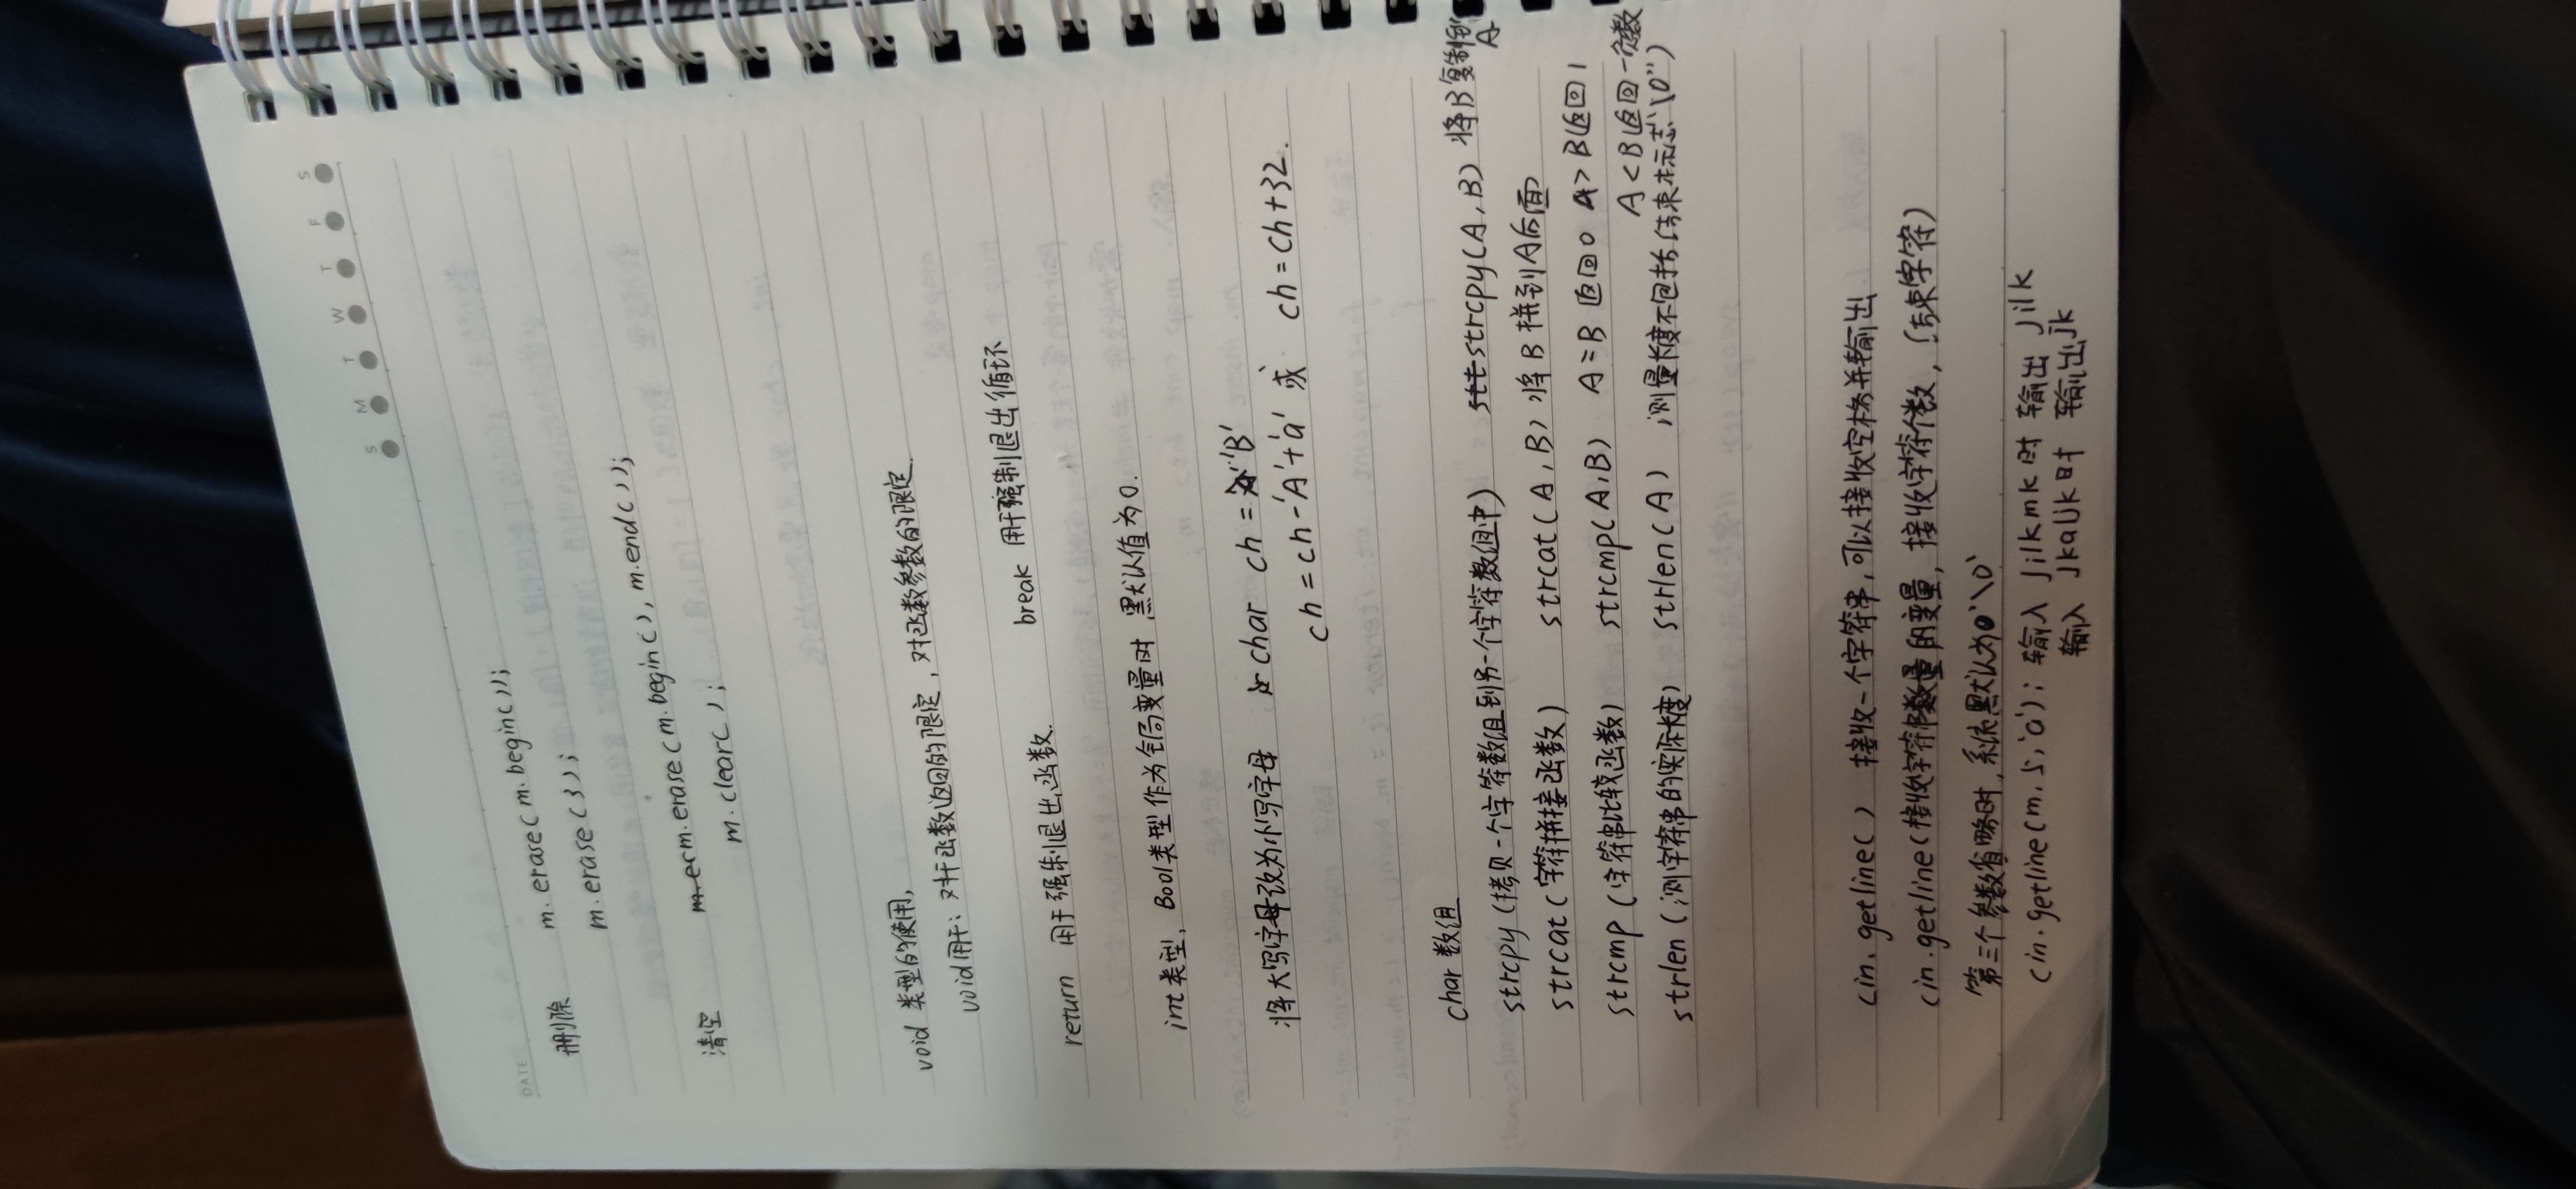 DATE
S M T W T F S
删除 m.erase(m.begin());
m.erase(3);
清空 m.erase(m.begin(), m.end());
m.clear();
void 类型的使用,
void用于: 对于函数返回的限定, 对函数参数的限定.
return 用于强制退出函数. break 用于强制退出循环
int类型, Bool类型作为全局变量时 默认值为0.
将大写字母改为小写字母 char ch = 'B'
ch = ch-'A'+'a' 或 ch = ch+32.
char 数组
strcpy (拷贝一个字符数组到另一个字符数组中) strcpy(A,B) 将B复制到A
strcat (字符拼接函数) strcat(A,B) 将B拼到A后面
strcmp (字符串比较函数) strcmp(A,B) A=B 返回0 A>B返回1
A<B返回一负数
strlen (测字符串的实际长度) strlen(A) 测量长度不包括(结束标志'\0'')
cin.getline() 接收一个字符串,可以接收空格并输出
cin.getline(接收字符数量的变量, 接收字符个数, 结束字符)
第三个参数省略时,系统默认为'\0'
cin.getline(m,5,'a'); 输入 jilkmk时 输出 jilk
输入 jkaUk时 输出jk